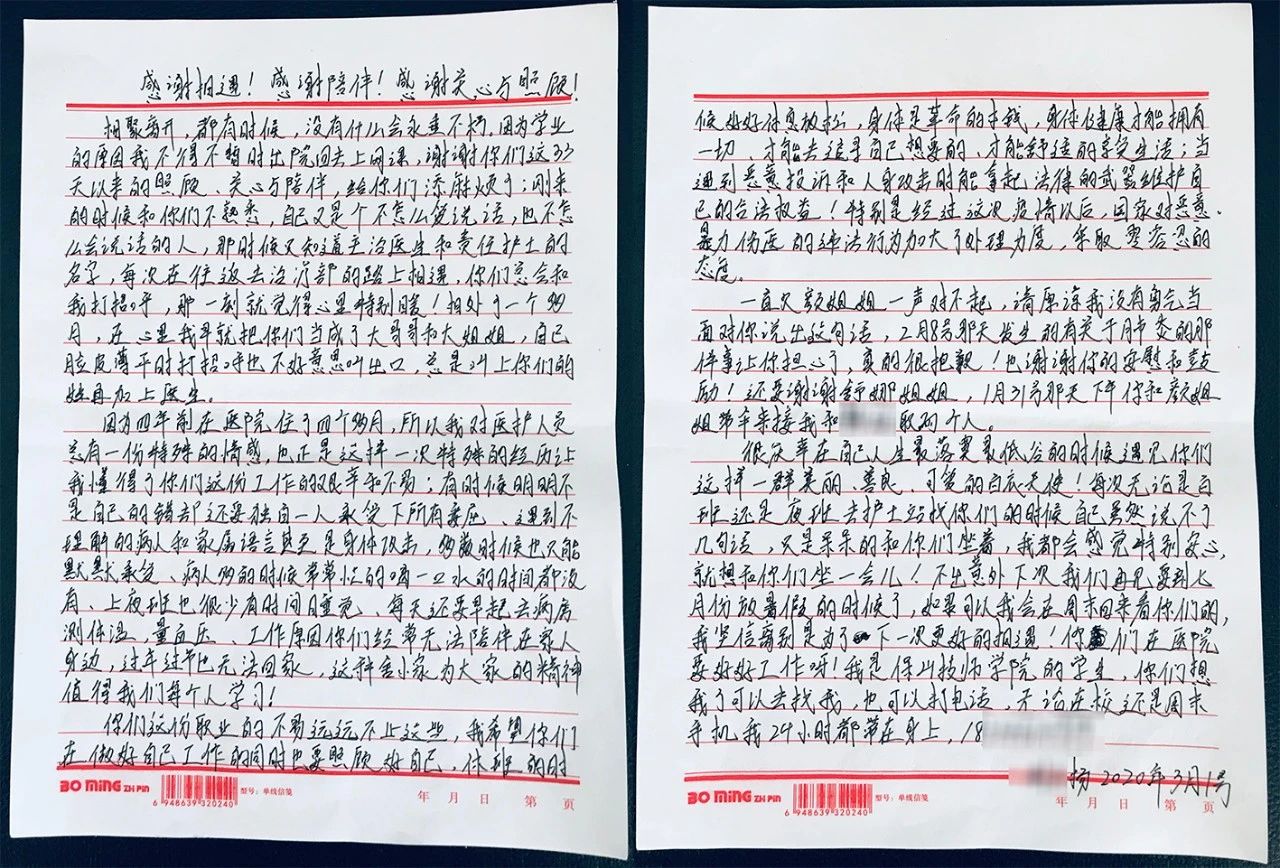 感谢相遇！感谢陪伴！感谢关心与照顾！
相聚离开，都有时候，没有什么会永垂不朽，因为学业
的原因我不得不暂时出院回去上网课，谢谢你们这33
天以来的照顾、关心与陪伴，给你们添麻烦了；刚来
的时候和你们不熟悉，自己又是个不怎么爱说话，也不怎
么会说话的人，那时候只知道主治医生和责任护士的
名字，每次在往返去治疗部的路上相遇，你们总会和
我打招呼，那一刻就觉得心里特别暖！相处了一个多
月，在心里我早就把你们当成了大哥哥和大姐姐，自己
脸皮薄平时打招呼也不好意思叫出口，总是叫上你们的
姓再加上医生。
因为四年前在医院住了四个多月，所以我对医护人员
总有一份特殊的情感，也正是这样一次特殊的经历让
我懂得了你们这份工作的艰辛和不易；有时候明明不
是自己的错却还要独自一人承受下所有委屈、遇到不
理解的病人和家属语言甚至是身体攻击，多数时候也只能
默默承受、病人多的时候常常忙的喝一口水的时间都没
有、上夜班也很少有时间睡觉、每天还要早起去病房
测体温，量血压、工作原因你们经常无法陪伴在家人
身边，过年过节也无法回家，这种舍小家为大家的精神
值得我们每个人学习！
你们这份职业的不易远远不止这些，我希望你们
在做好自己工作的同时也要照顾好自己，休班的时
BO MING ZHI PIN
6 948639 320240
型号：单线信笺
年 月 日 第 页
候好好休息放松，身体是革命的本钱，身体健康才能拥有
一切、才能去追寻自己想要的、才能舒适的享受生活；当
遇到恶意投诉和人身攻击时能拿起法律的武器维护自
己的合法权益！特别是经过这次疫情以后，国家对恶意、
暴力伤医的违法行为加大了处理力度，采取零容忍的
态度。
一直欠颜姐姐一声对不起，请原谅我没有勇气当
面对你说出这句话，2月8号那天发生的有关于月市委的那
件事让你担心了，真的很抱歉！也谢谢你的安慰和鼓
励！还要谢谢舒娜姐姐，1月31号那天下午你和颜姐
姐带伞来接我和 取的个人。
很庆幸在自己人生最落寞最低谷的时候遇见你们
这样一群美丽、善良、可爱的白衣天使！每次无论是白
班还是夜班去护士站找你们的时候自己虽然说不了
几句话，只是呆呆的和你们坐着，我都会感觉特别安心，
就想和你们坐一会儿！不出意外下次我们再见要到七
月份放暑假的时候了，如果可以我会在周末回来看你们的，
我坚信离别是为了下一次更好的相遇！你们在医院
要好好工作呀！我是保山技师学院的学生，你们想
我了可以去找我，也可以打电话，无论在校还是周末
手机我24小时都带在身上，18
扬 2020年3月1号
BO MING ZHI PIN
6 948639 320240
型号：单线信笺
年 月 日 第 页